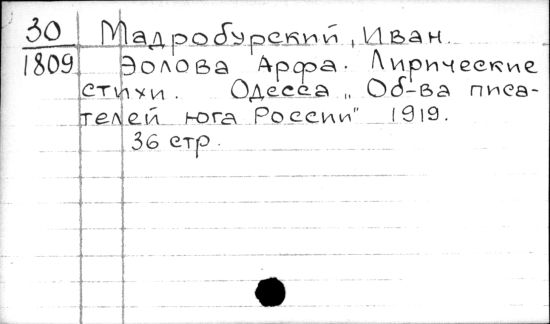 30 Мадробурский, Иван.
1809 Эолова Арфа. Лирические
стихи. Одесса „Об-ва писа-
телей юга России" 1919.
36 стр.